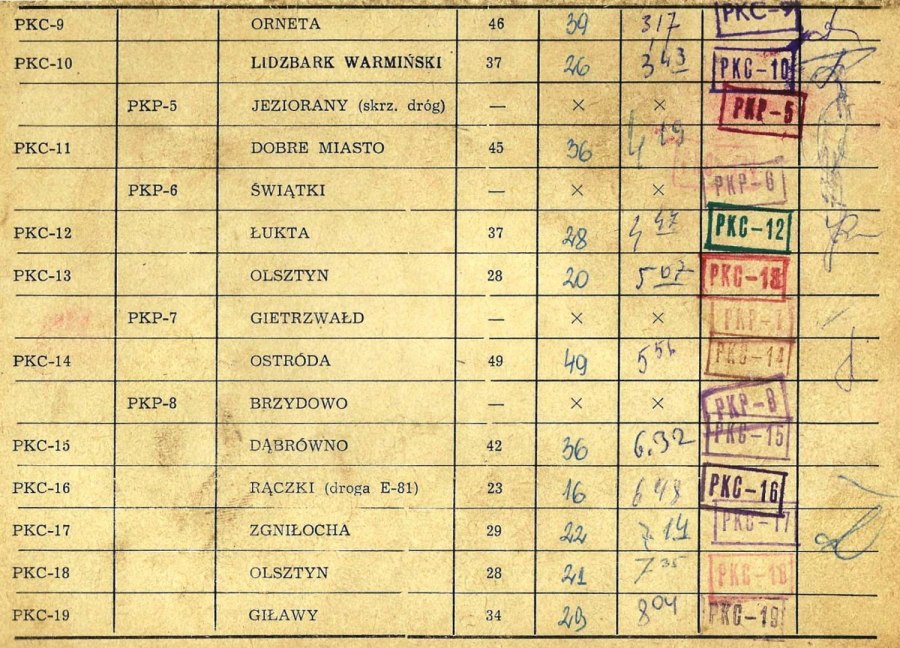 PKC-9 ORNETA 46 39 317 PKC-9
PKC-10 LIDZBARK WARMIŃSKI 37 26 343 PKC-10
PKP-5 JEZIORANY (skrz. dróg) — × × PKP-5
PKC-11 DOBRE MIASTO 45 36 4 19
PKP-6 ŚWIĄTKI — × × PKP-6
PKC-12 ŁUKTA 37 28 4 47 PKC-12
PKC-13 OLSZTYN 28 20 5 07 PKC-13
PKP-7 GIETRZWAŁD — × × PKP-7
PKC-14 OSTRÓDA 49 49 5 56 PKC-14
PKP-8 BRZYDOWO — × × PKP-8
PKC-15 DĄBRÓWNO 42 36 6.32 PKC-15
PKC-16 RĄCZKI (droga E-81) 23 16 6 48 PKC-16
PKC-17 ZGNIŁOCHA 29 22 7 14 PKC-17
PKC-18 OLSZTYN 28 21 7 35 PKC-18
PKC-19 GIŁAWY 34 29 8 04 PKC-19